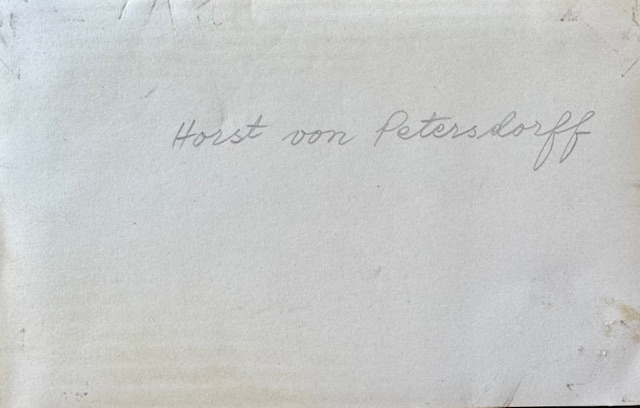 Horst von Petersdorff